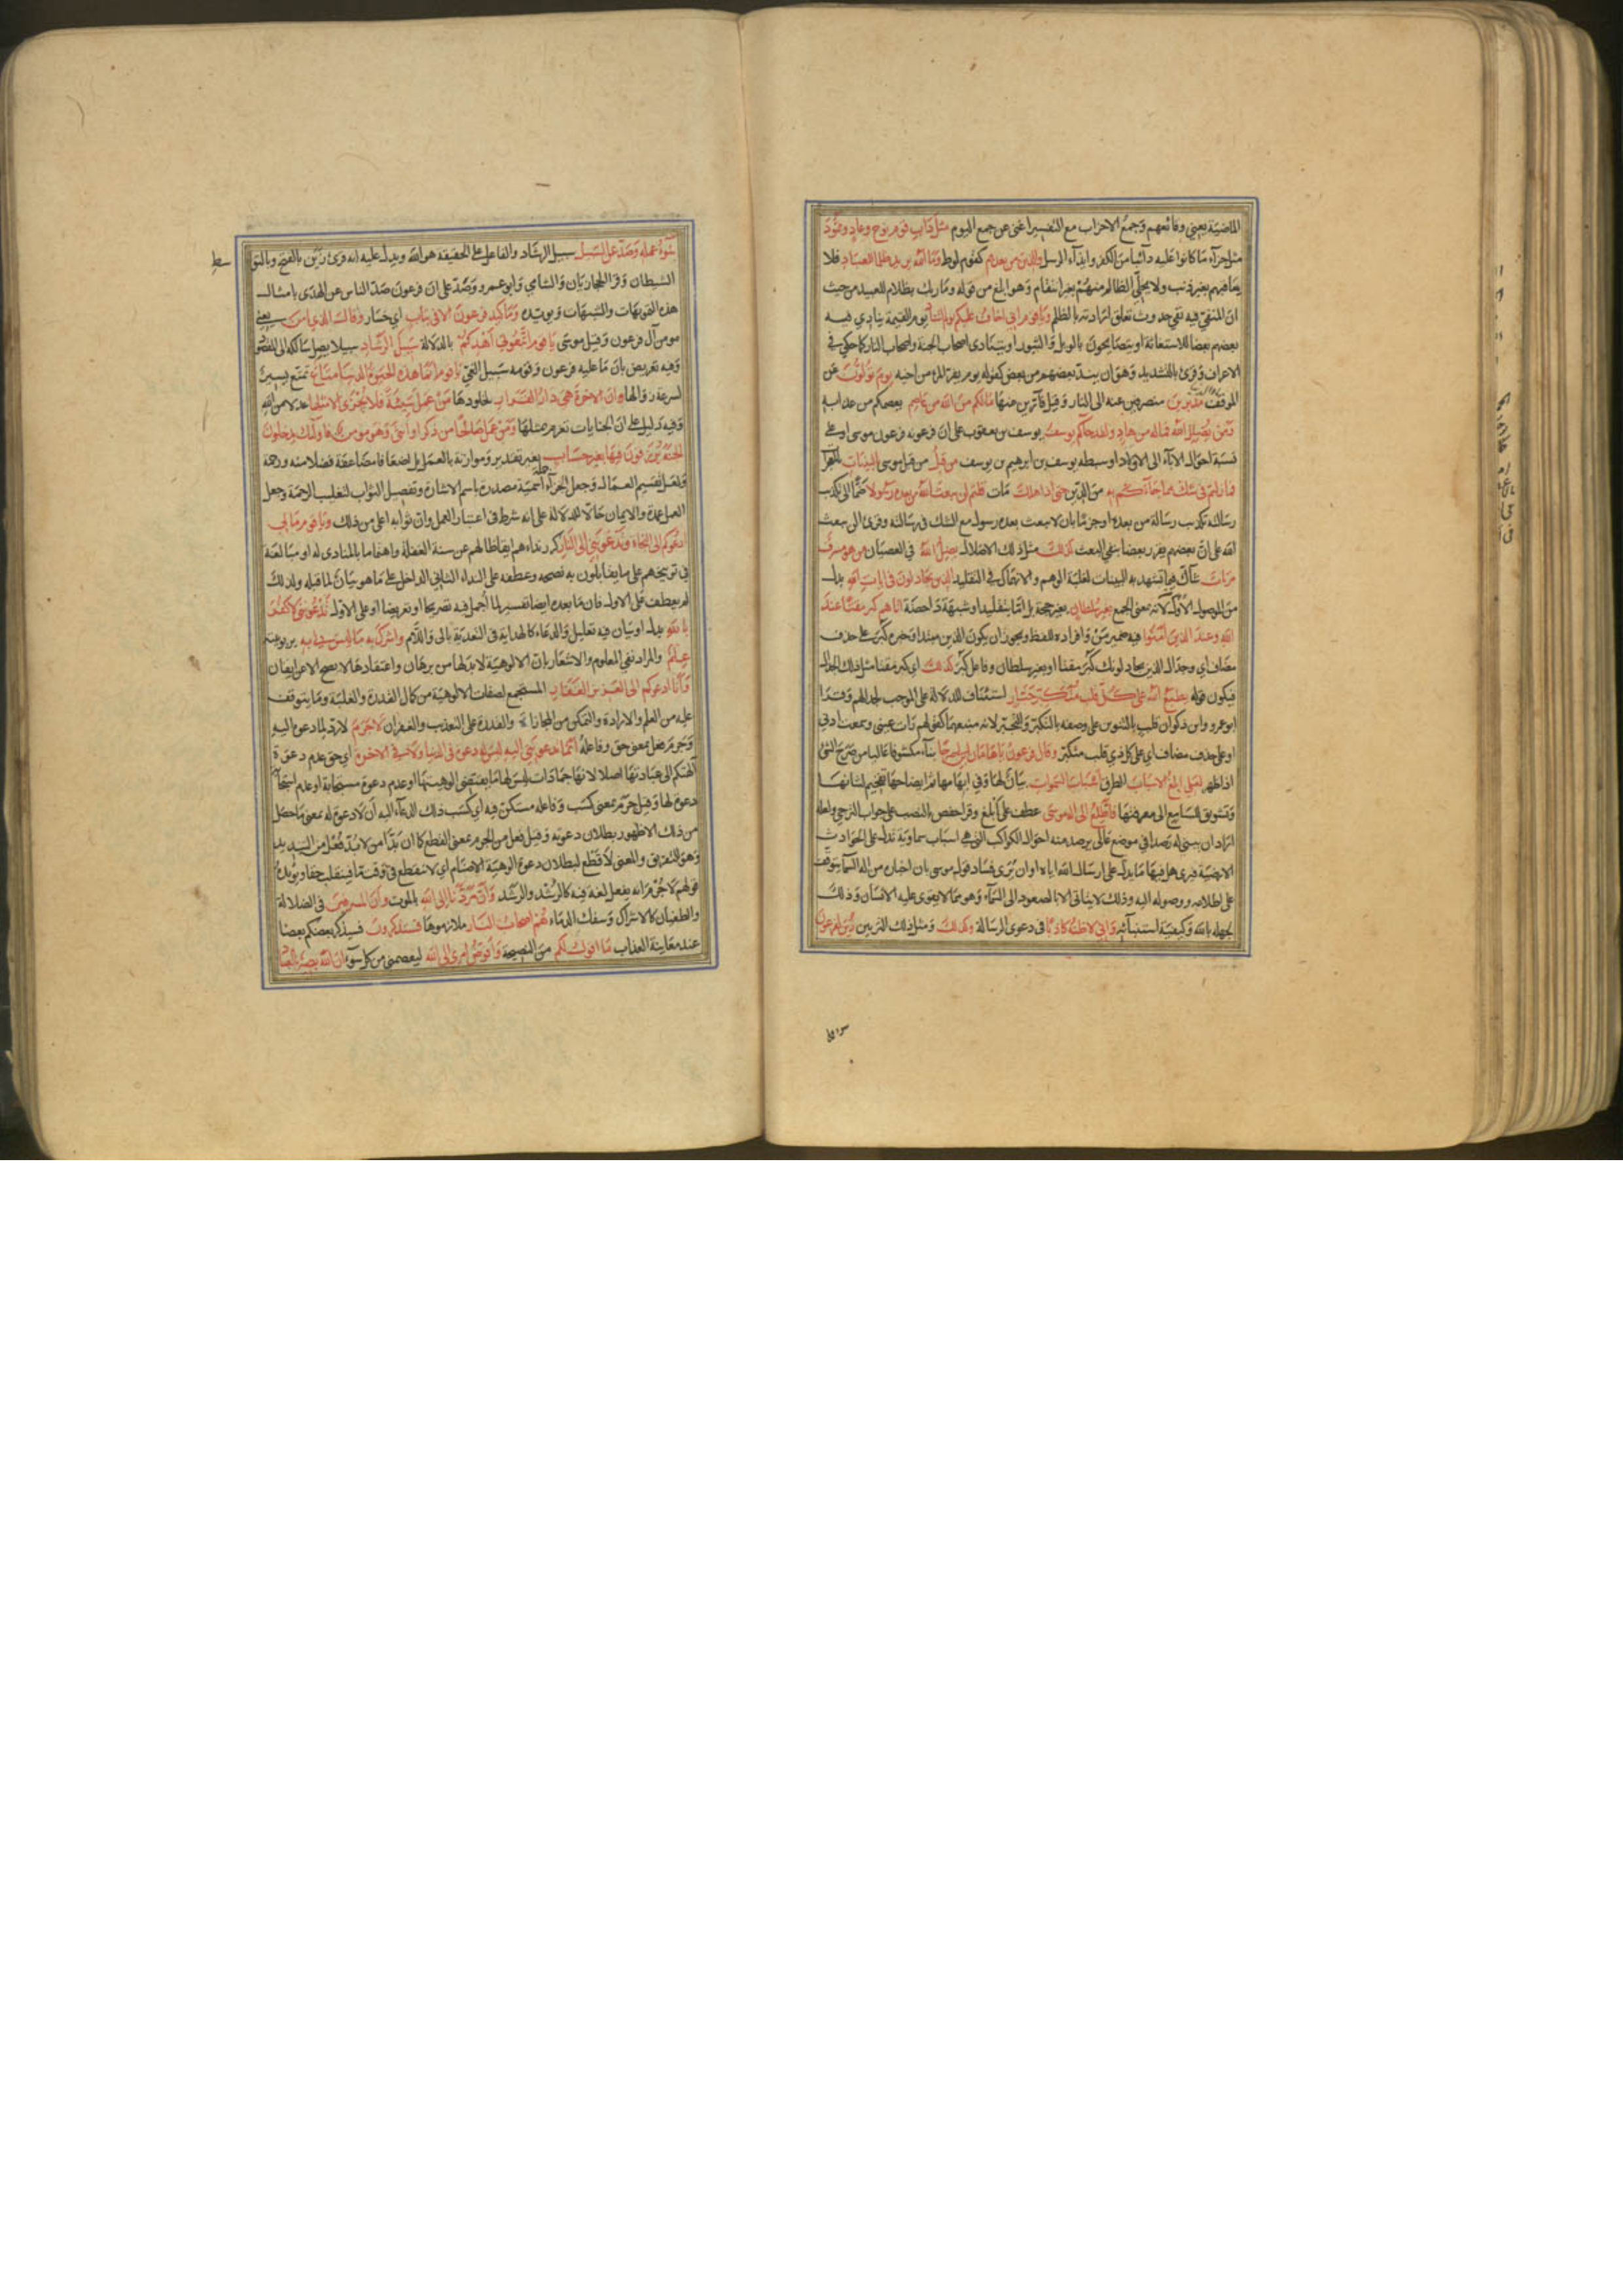 الماضية يعني وقائعهم وجمع الاحزاب مع التفسير اغنى عن جمع اليوم مثل داب قوم نوح وعاد وثمود
مثل جزآء ما كانوا عليه دآئبا من الكفر وايذآء الرسل والذين من بعدهم كقوم لوط وما الله يريد ظلما للعباد فلا
يعاقبهم بغير ذنب ولا يخلّي الظالم منهم بغير انتقام وهو ابلغ من قوله وما ربك بظلام للعبيد من حيث
ان المنفي فيه نفي حدوث تعلق ارادته بالظلم ويا قوم اني اخاف عليكم يوم التناد يوم القيمة ينادي فيه
بعضهم بعضا للاستغاثة او يتصايحون بالويل والثبور او يتنادى اصحاب الجنة واصحاب النار كما حكي في
الاعراف وقرئ بالتشديد وهو ان يندّ بعضهم من بعض كقوله يوم يفر المرء من اخيه يوم تولون عن
الموقف مدبرين منصرفين عنه الى النار وقيل فآرين عنها مالكم من الله من عاصم يعصمكم من عذابه
ومن يضلل الله فماله من هاد ولقد جآءكم يوسف يوسف بن يعقوب على ان فرعونه فرعون موسى او على
نسبة احوال الابآء الى الاولاد او سبطه يوسف بن ابرهيم بن يوسف من قبل من قبل موسى بالبينات بالمعجزات
فما زلتم في شك مما جآءكم به من الدين حتى اذا هلك مات قلتم لن يبعث الله من بعده رسولا ضمّا الى تكذيب
رسالته تكذيب رسالة من بعده او جزما بان لا يبعث بعده رسول مع الشك في رسالته وقرئ الن يبعث
الله على ان بعضهم يقرر بعضا بنفي البعث كذلك مثل ذلك الاضلال يضل الله في العصيان من هو مسرف
مرتاب شاك فيما تشهد به البينات لغلبة الوهم والانهماك في التقليد الذين يجادلون في ايات الله بدل
من الموصول الاول لانه بمعنى الجمع بغير سلطان بغير حجة بل اما بتقليد او شبهة داحضة اتاهم كبر مقتا عند
الله وعند الذين امنوا فيه ضمير من وافراده للفظ ويجوز ان يكون الذين مبتدا وخبره كبر على حذف
مضاف اي وجدال الذين يجادلون كبر مقتا او بغير سلطان وفاعل كبر كذلك اي كبر مقتا مثل ذلك الجدال
فيكون قوله يطبع الله على كل قلب متكبر جبار استئناف للدلالة على الموجب لجدالهم وقرا
ابو عمرو وابن ذكوان قلب بالتنوين على وصفه بالتكبر والتجبر لانه منبعهما كقولهم رات عيني وسمعت اذني
او على حذف مضاف اي على كل ذي قلب متكبر وقال فرعون يا هامان ابن لي صرحا بنآء مكشوفا عاليا من صرح الشئ
اذا ظهر لعلي ابلغ الاسباب الطرق اسباب السموات بيان لها وفي ابهامها ثم ايضاحها تفخيم لشانها
وتشويق للسامع الى معرفتها فاطلع الى اله موسى عطف على ابلغ وقرا حفص بالنصب على جواب الترجي ولعله
اراد ان يبني له رصدا في موضع عالي يرصد منه احوال الكواكب التي هي اسباب سماوية تدل على الحوادث
الارضية فيرى هل فيها ما يدل على ارسال الله اياه او ان يرى فساد قول موسى بان اخباره من اله السماء يتوقف
على اطلاعه ووصوله اليه وذلك لا يتاتى الا بالصعود الى السمآء وهو مما لا يقوى عليه الانسان وذلك
لجهله بالله وكيفية استنبآئه واني لاظنه كاذبا في دعوى الرسالة وكذلك ومثل ذلك التزيين زين لفرعون
سوء عمله وصدّ عن السبيل سبيل الرشاد والفاعل على الحقيقة هو الله ويدل عليه انه قرئ زين بالفتح وبالتوسط
الشيطان وقرا الحجازيان والشامي وابو عمرو وصدّ على ان فرعون صدّ الناس عن الهدى بامثال
هذه التمويهات والشبهات ويؤيده وما كيد فرعون الا في تباب اي خسار وقال الذي امن يعني
مومن آل فرعون وقيل موسى يا قوم اتبعوني اهدكم بالدلالة سبيل الرشاد سبيلا يصل سالكه الى المقصود
وفيه تعريض بان ما عليه فرعون وقومه سبيل الغي يا قوم انما هذه الحيوة الدنيا متاع تمتع يسير
لسرعة زوالها وان الاخرة هي دار القرار لخلودها من عمل سيئة فلا يجزى الا مثلها عدلا من الله
وفيه دليل على ان الجنايات تغرم بمثلها ومن عمل صالحا من ذكر او انثى وهو مومن فاولئك يدخلون
الجنة يرزقون فيها بغير حساب بغير تقدير وموازنة بالعمل بل اضعافا مضاعفة فضلا منه ورحمة
ولعل تقسيم العمال وجعل الجزآء جملة اسمية مصدرة باسم الاشارة وتفضيل الثواب لتغليب الرحمة وجعل
العمل عمدة والايمان حالا للدلالة على انه شرط في اعتبار العمل وان ثوابه اعلى من ذلك ويا قوم مالي
ادعوكم الى النجاة وتدعونني الى النار كرر نداءهم ايقاظا لهم عن سنة الغفلة واهتماما بالمنادى له ومبالغة
في توبيخهم على ما يقابلون به نصحه وعطفه على النداء الثاني الداخل على ما هو بيان لما قبله ولذلك
لم يعطف على الاول فان ما بعده ايضا تفسير لما أجمل فيه تصريحا او تعريضا او على الاول تدعونني لاكفر
بالله بدل او بيان فيه تعليل والدعاء كالهداية في التعدية بالى واللام واشرك به ما ليس لي به بربوبيته
علم والمراد نفي المعلوم والاشعار بان الالوهية لابد لها من برهان واعتقادها لا يصح الا عن ايقان
وانا ادعوكم الى العزيز الغفار المستجمع لصفات الالوهية من كمال القدرة والغلبة وما يتوقف
عليه من العلم والارادة والتمكن من المجازاة والقدرة على التعذيب والغفران لا جرم لا رد لما دعوه اليه
وجرم فعل بمعنى حق وفاعله انما تدعونني اليه ليس له دعوة في الدنيا ولا في الاخرة اي حق عدم دعوة
آلهتكم الى عبادتها اصلا لانها جمادات ليس لها ما يقتضي الوهيتها او عدم دعوة مستجابة او عدم استجابة
دعوة لها وقيل جرم بمعنى كسب وفاعله مستكن فيه اي كسب ذلك الدعآء اليه ان لا دعوة له بمعنى ما حصل
من ذلك الا ظهور بطلان دعوته وقيل فعل من الجرم بمعنى القطع كما ان بدّا من لابدّ فعل من التبديد
وهو التفريق والمعنى لا قطع لبطلان دعوة الوهية الاصنام اي لا ينقطع في وقت ما فينقلب حقا ويؤيده
قولهم لا جرم انه يفعل لغة فيه كالرشد والرشد وان مردّنا الى الله بالموت وان المسرفين في الضلالة
والطغيان كالاشراك وسفك الدماء هم اصحاب النار ملازموها فستذكرون فسيذكر بعضكم بعضا
عند معاينة العذاب ما اقول لكم من النصيحة وافوض امري الى الله ليعصمني من كل سوء ان الله بصير بالعباد